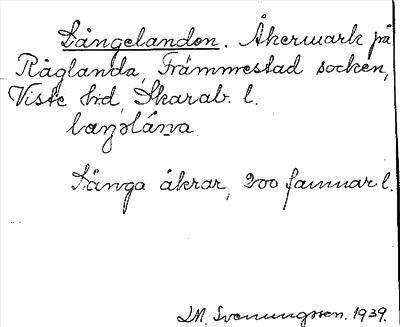 Långelanden. Åkermark på
Råglanda, Främmestad socken,
Viste hd, Skarab. l.
laŋəlána
Långa åkrar, 200 famnar l.
I.M. Svenungsson. 1939.